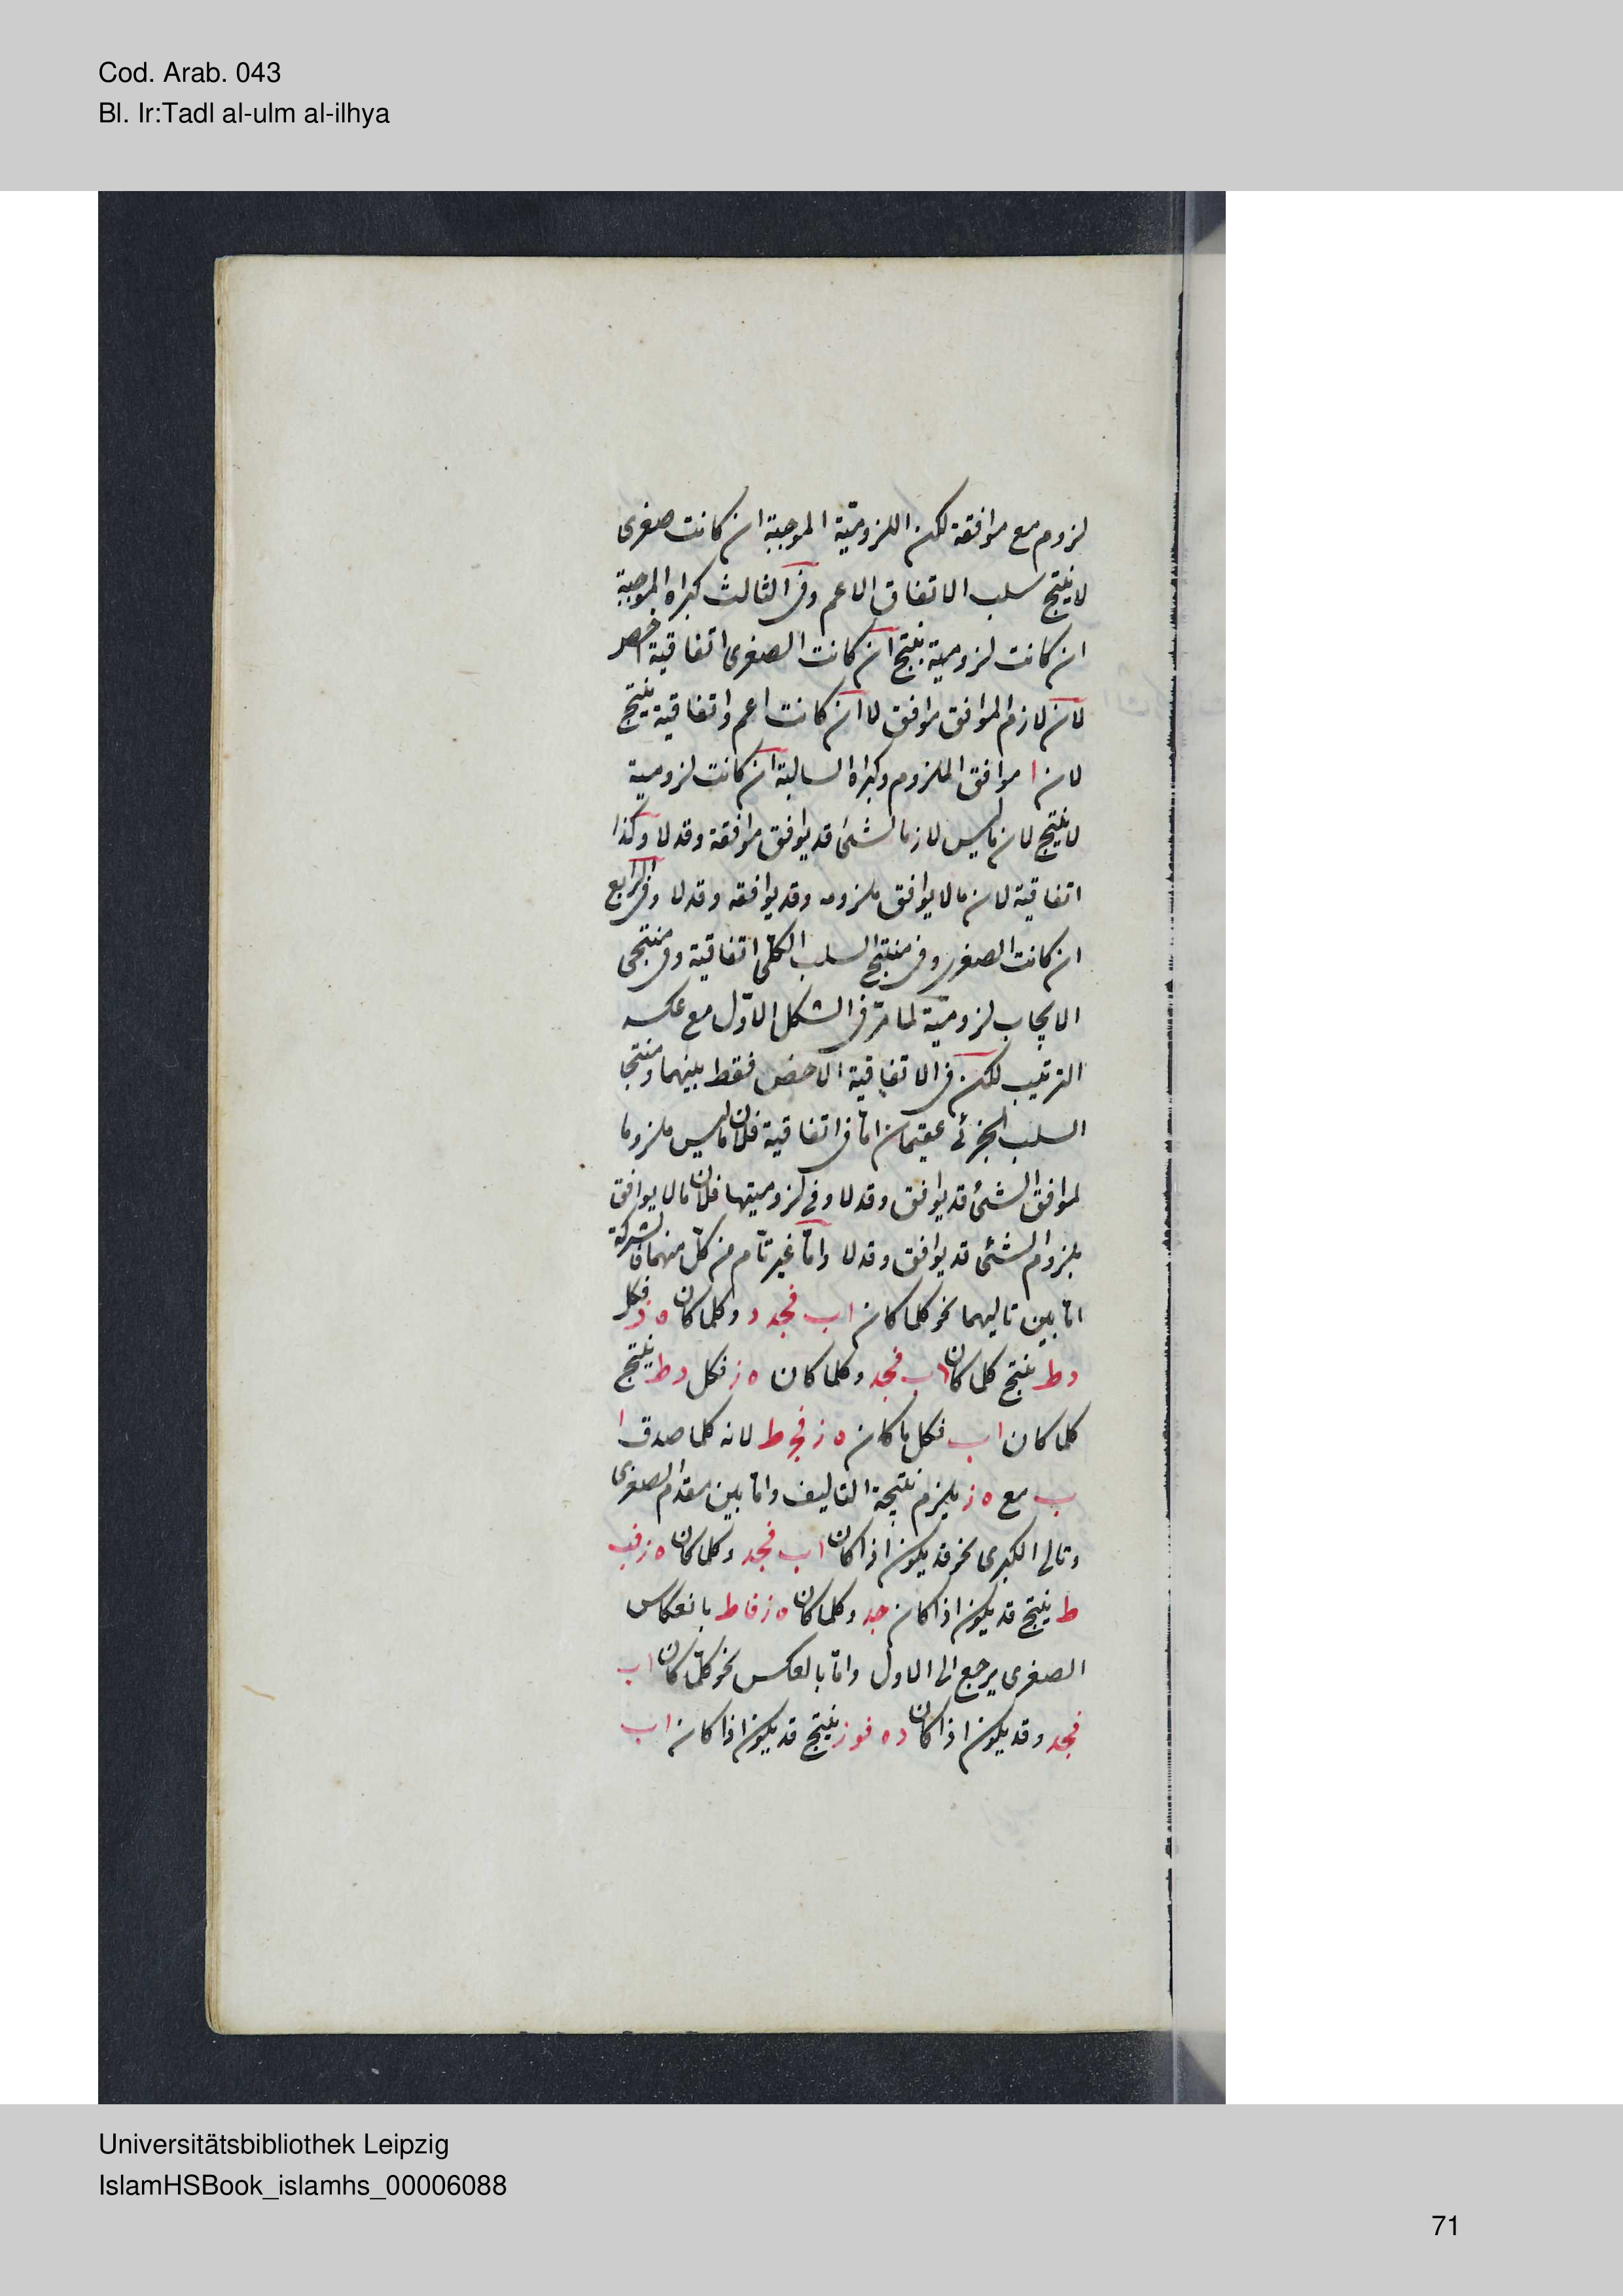 Cod. Arab. 043
Bl. Ir:Tadl al-ulm al-ilhya
لزوم مع موافقة لكن اللزوميّة الموجبة ان كانت صغرى
لا ينتج سلب الاتفاق الاعم وفى الثالث كبراه الموجبة
ان كانت لزومية ينتج ان كانت الصغرى اتفاقية اخص
لان لازم الموافق موافق لا ان كانت اعم واتفاقية ينتج
لان ا موافق الملزوم وكبراه السالبة ان كانت لزومية
لا ينتج لان ماليس لازما لشئ قد يوافق موافقة وقد لا وكذا
اتفاقية لان ما لا يوافق ملزومه وقد يوافقه وقد لا وفى الرابع
ان كانت الصغرى وفى منتج السلب الكلّى اتفاقية وفى منتجى
الايجاب لزوميّة لما مرّ فى الشكل الاوّل مع عكسه
الترتيب لكن فى الاتفاقية الاخص فقط بينهما ومنتجا
السلب الجزئى عقيمان امّا فى اتفاقية فلان ماليس ملزوما
لموافق الشئ قد يوافق وقد لا وفى لزوميتها فلان ما لا يوافق
ملزوم الشئ قد يوافق وقد لا وامّا غير تامّ من كلّ منهما فالشركة
امّا بين تاليهما نحو كلما كان اب فجد د وكلما كان ه ز فكل
د ط ينتج كلما كان اب فجد وكلما كان ه ز فكل د ط ينتج
كلما كان اب فكل ما كان ه ز فج ط لانه كلما صدق ا
ب مع ه ز يلزم نتيجة التاليف وامّا بين مقدم الصغرى
وتالى الكبرى نحو قد يكون اذا كان اب فجد وكلما كان ه ز فب
ط ينتج قد يكون اذا كان جد وكلما كان ه ز فاط بانعكاس
الصغرى يرجع الى الاول وامّا بالعكس نحو كلّما كان اب
فجد وقد يكون اذا كان د ه فوز ينتج قد يكون اذا كان اب
Universitätsbibliothek Leipzig
IslamHSBook_islamhs_00006088
71